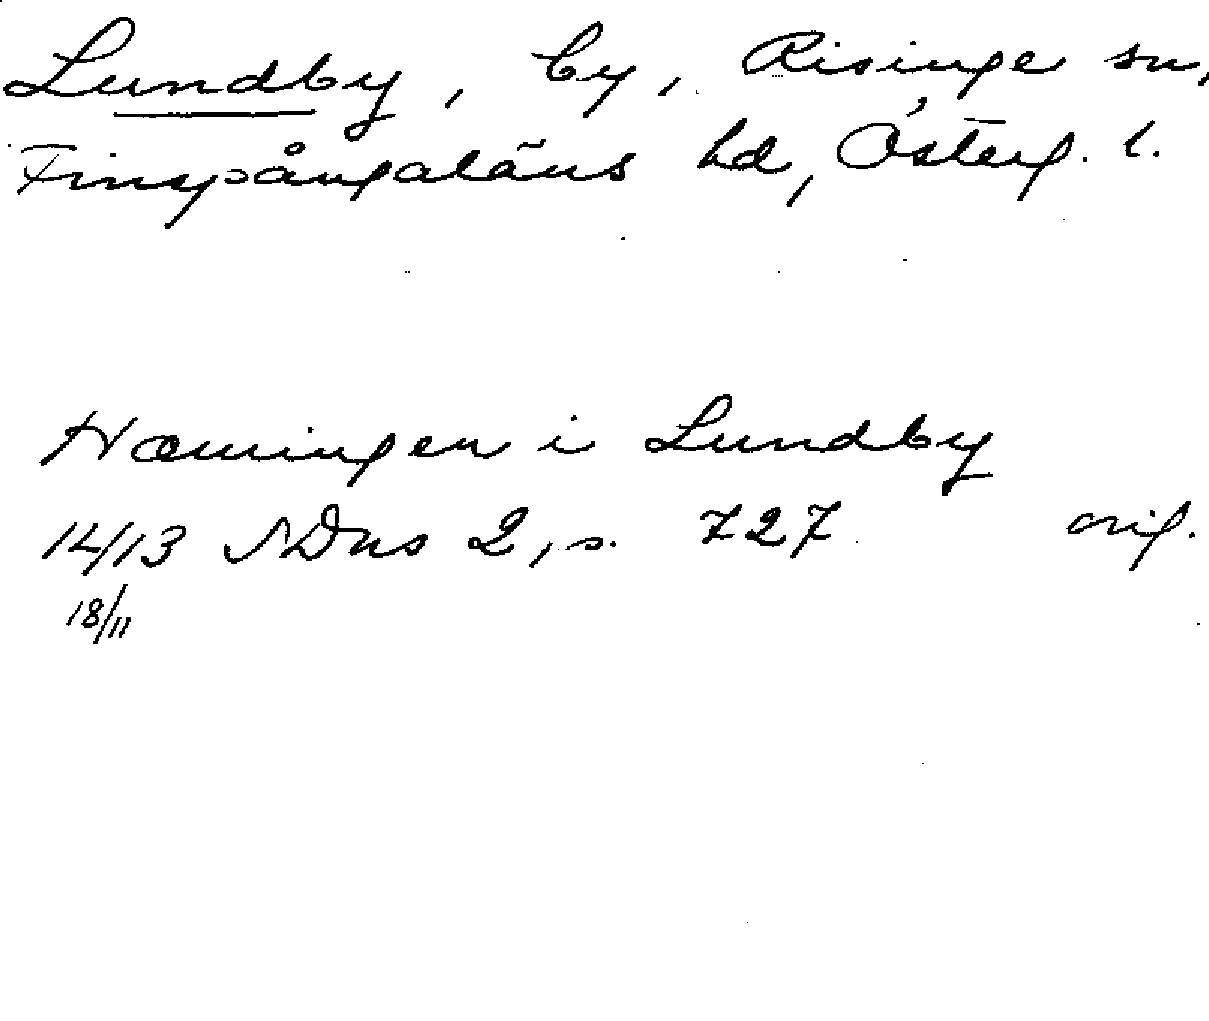 Lundby, by, Risinge sn,
Finspångaläns hd, Österg. l.
Hæmingen i Lundby
1413 NDns 2, s. 727 orig.
18/11